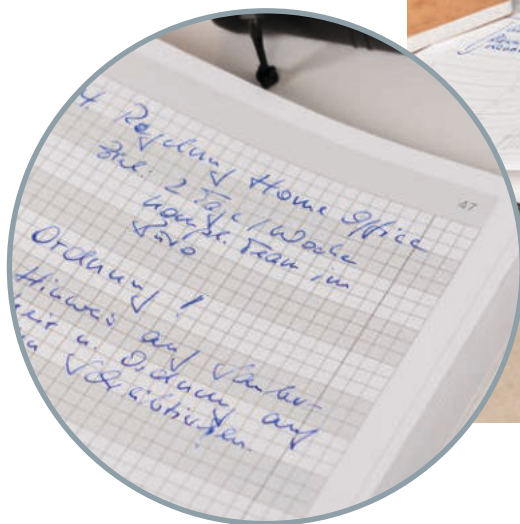 47
4. Regelung Home Office
Ziel: 2 Tage / Woche
kompl. Team im
Büro
Ordnung!
Hinweis auf Sauber-
keit u. Ordnung auf
Schreibtischen.